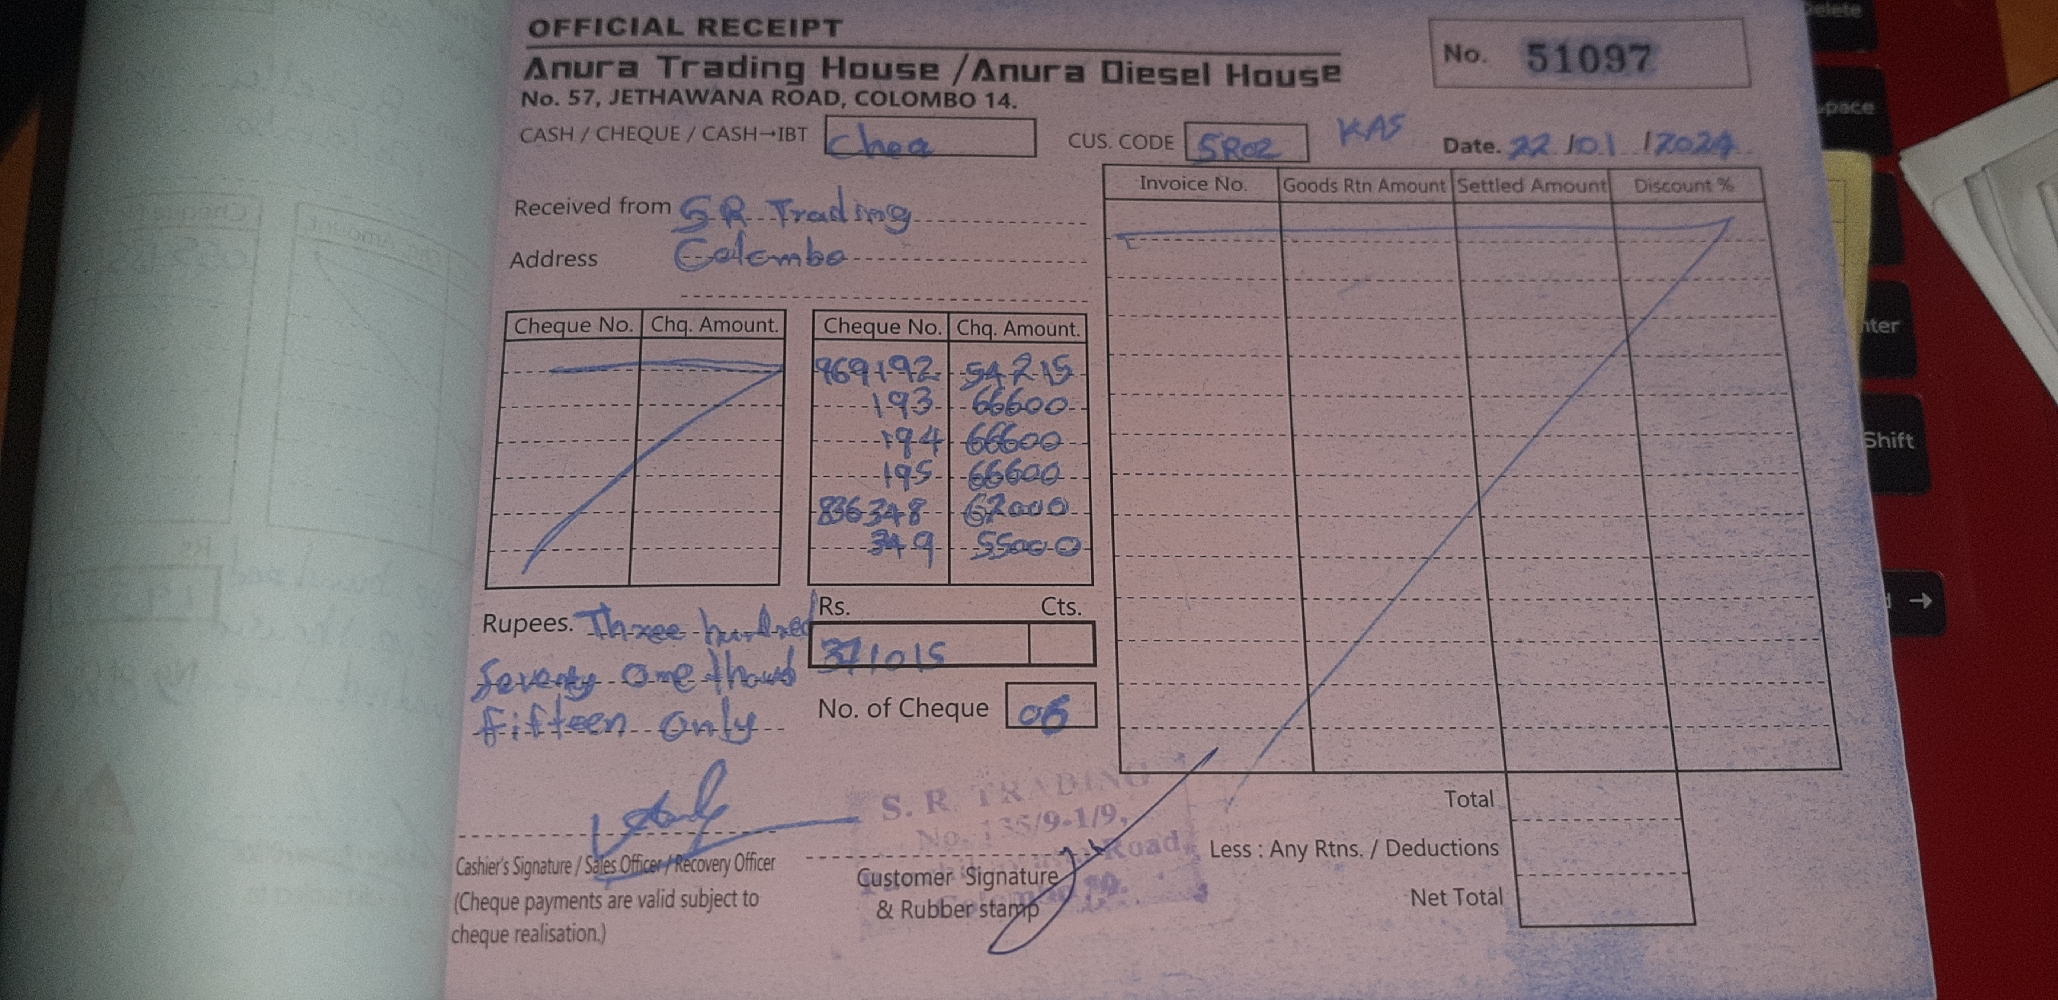 OFFICIAL RECEIPT
Anura Trading House /Anura Diesel House
No. 57, JETHAWANA ROAD, COLOMBO 14.
No. 51097
CASH / CHEQUE / CASH→IBT Cheq
CUS. CODE SR02 KAS
Date. 22/01/2024
Received from S R Trading
Address Colombo
Cheque No. Chq. Amount.
Cheque No. Chq. Amount.
969192 54215
193 66600
194 66600
195 66600
836348 62000
349 55000
Invoice No. Goods Rtn Amount Settled Amount Discount %
Rupees. Three hundred
Seventy One thous
fifteen only
Rs. Cts.
371015
No. of Cheque 06
Total
Less : Any Rtns. / Deductions
Net Total
Cashier's Signature / Sales Officer / Recovery Officer
(Cheque payments are valid subject to
cheque realisation.)
S. R. TRADING
No. 135/9-1/9,
Road,
Customer Signature
& Rubber stamp
Delete
Shift
→